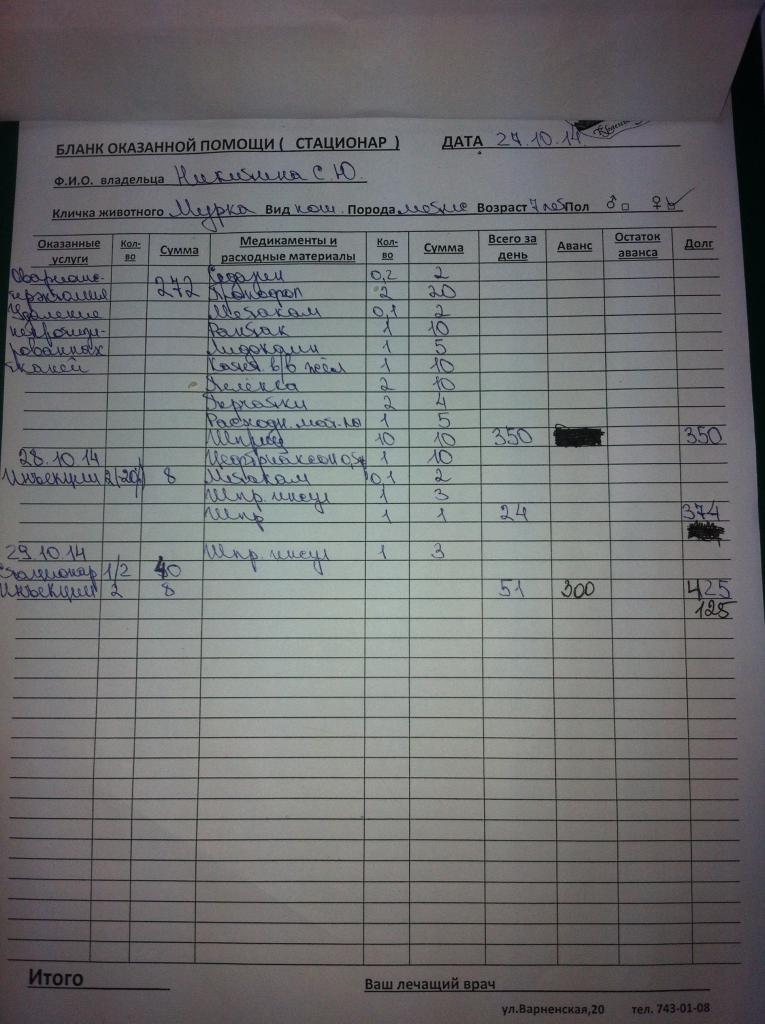 БЛАНК ОКАЗАННОЙ ПОМОЩИ ( СТАЦИОНАР ) ДАТА 27.10.14
Ф.И.О. владельца Никитина С.Ю.
Кличка животного Мурка Вид кош. Порода метис Возраст 7 лет Пол ♂ ♀
Оказанные услуги Кол-во Сумма Медикаменты и расходные материалы Кол-во Сумма Всего за день Аванс Остаток аванса Долг
Овариогис- 0,2 2
терэктомия 272 2 20
Удаление Метакам 0,1 2
некротизи- Рантак 1 10
рованных Лидокаин 1 5
тканей Катет в/в 1 10
Пелёнка 2 10
Перчатки 2 4
Расходн. мат-лы 1 5
Шприц 10 10 350 350
28.10.14 Цефтриаксон 0,5 1 10
Инъекции 2 8 Метакам 0,1 2
Шпр. инсул 1 3
Шпр 1 1 24 374
29.10.14 Шпр. инсул 1 3
Стационар 1/2 40
Инъекции 2 8 51 300 425
125
Итого Ваш лечащий врач
ул.Варненская,20 тел. 743-01-08